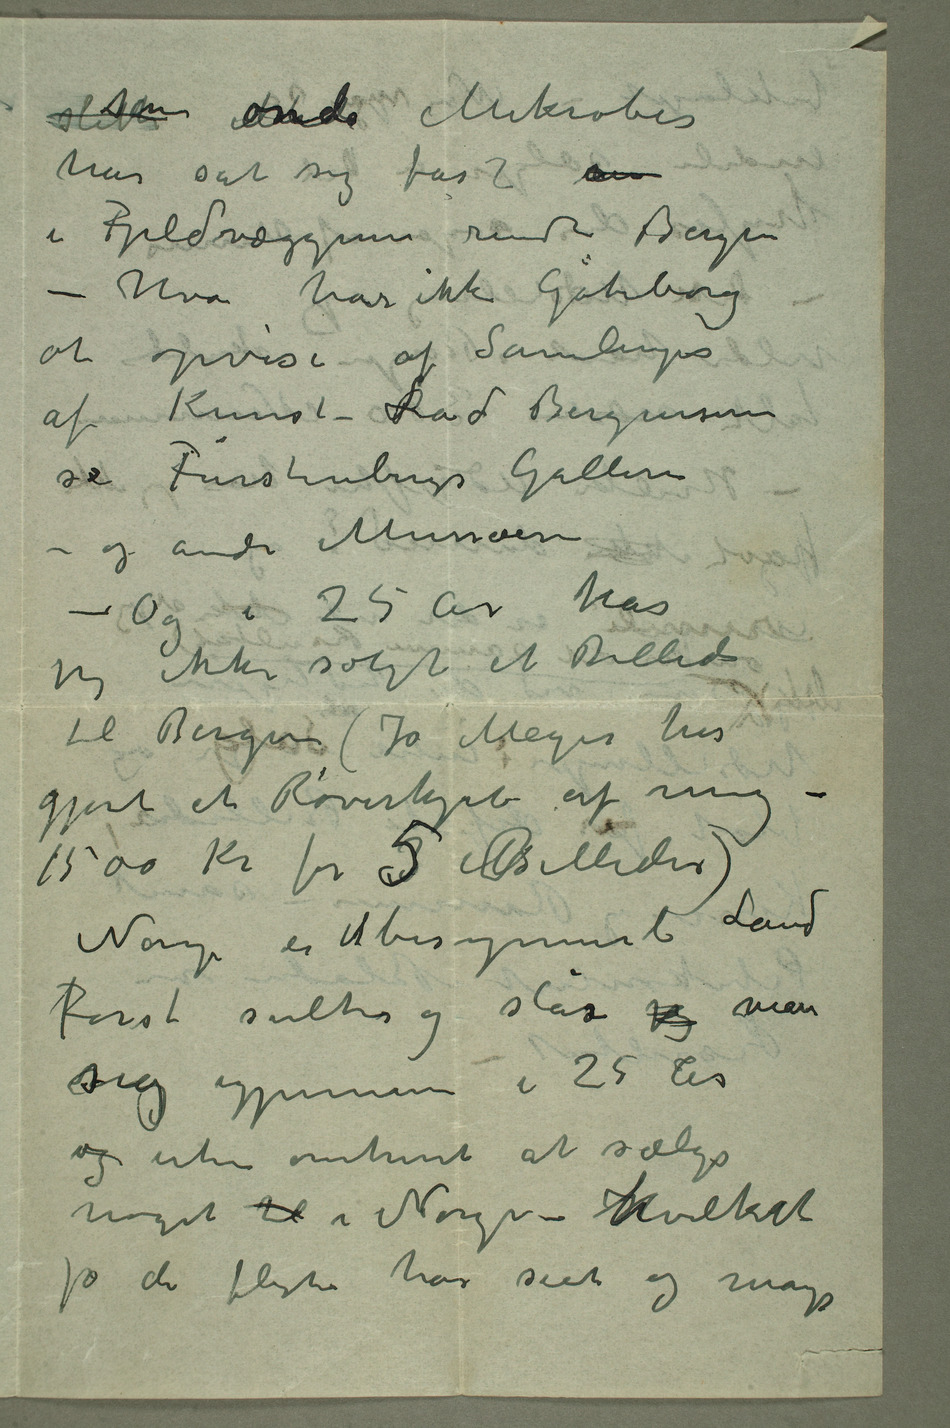 slette den onde Mikrober
har sat sig fast
i Fjeldvæggene rundt Bergen
– Hva har ikke Gøteborg
at opvise af Samlinger
af Kunst – Lad Bergenserne
se Fürstenbergs Galleri
– og andre Museer
– Og i 25 Aar har
jeg ikke solgt et Billede
til Bergen (Jo Meyer har
gjort et Røverkjøb af mig –
1500 Kr for 5 Billeder)
Norge er et besynnerlig Land
Først sultes og slås jeg man
sig igjennem i 25 År
og uten omtrent at sælge
noget til i Norge – Hvilket
jo de fleste har seet og mange